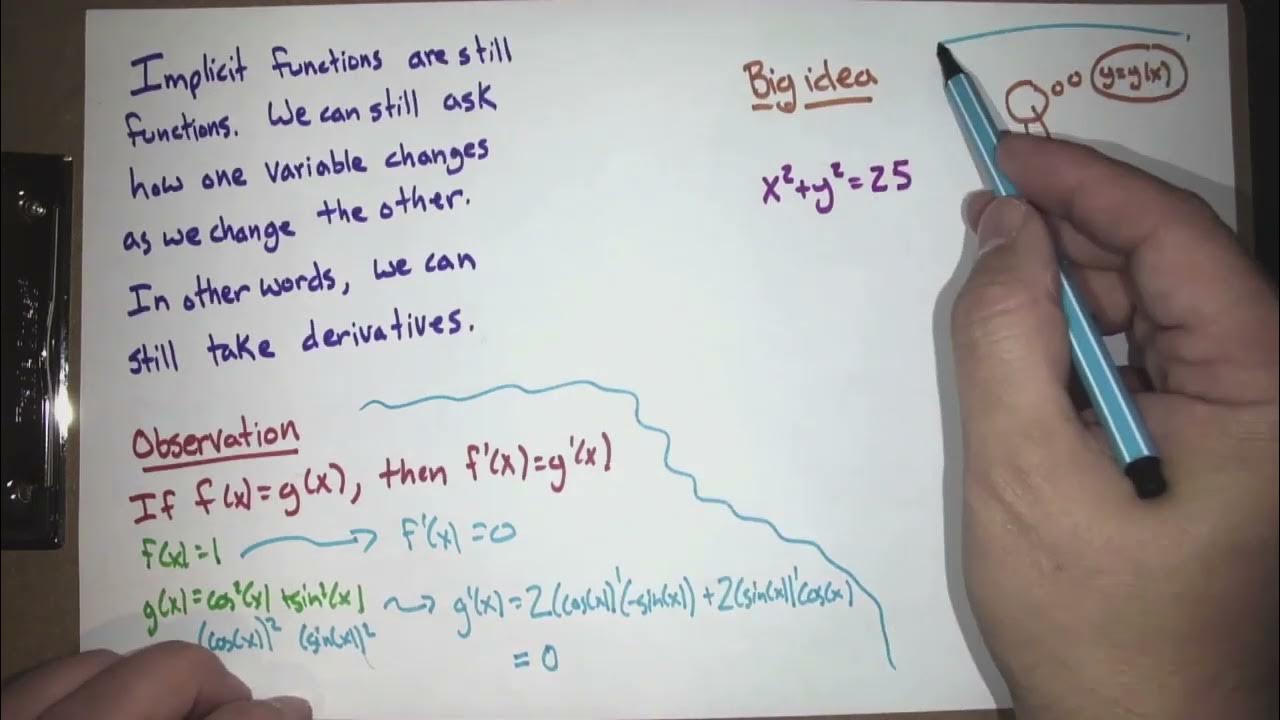 Implicit functions are still
functions. We can still ask
how one variable changes
as we change the other.
In other words, we can
still take derivatives.
Observation
If f(x)=g(x), then f'(x)=g'(x)
f(x)=1 → f'(x)=0
g(x)=cos²(x)+sin²(x) → g'(x)=2(cos(x))'(-sin(x))+2(sin(x))'cos(x)
(cos(x))² (sin(x))²
=0
Big idea
y=y(x)
x²+y²=25